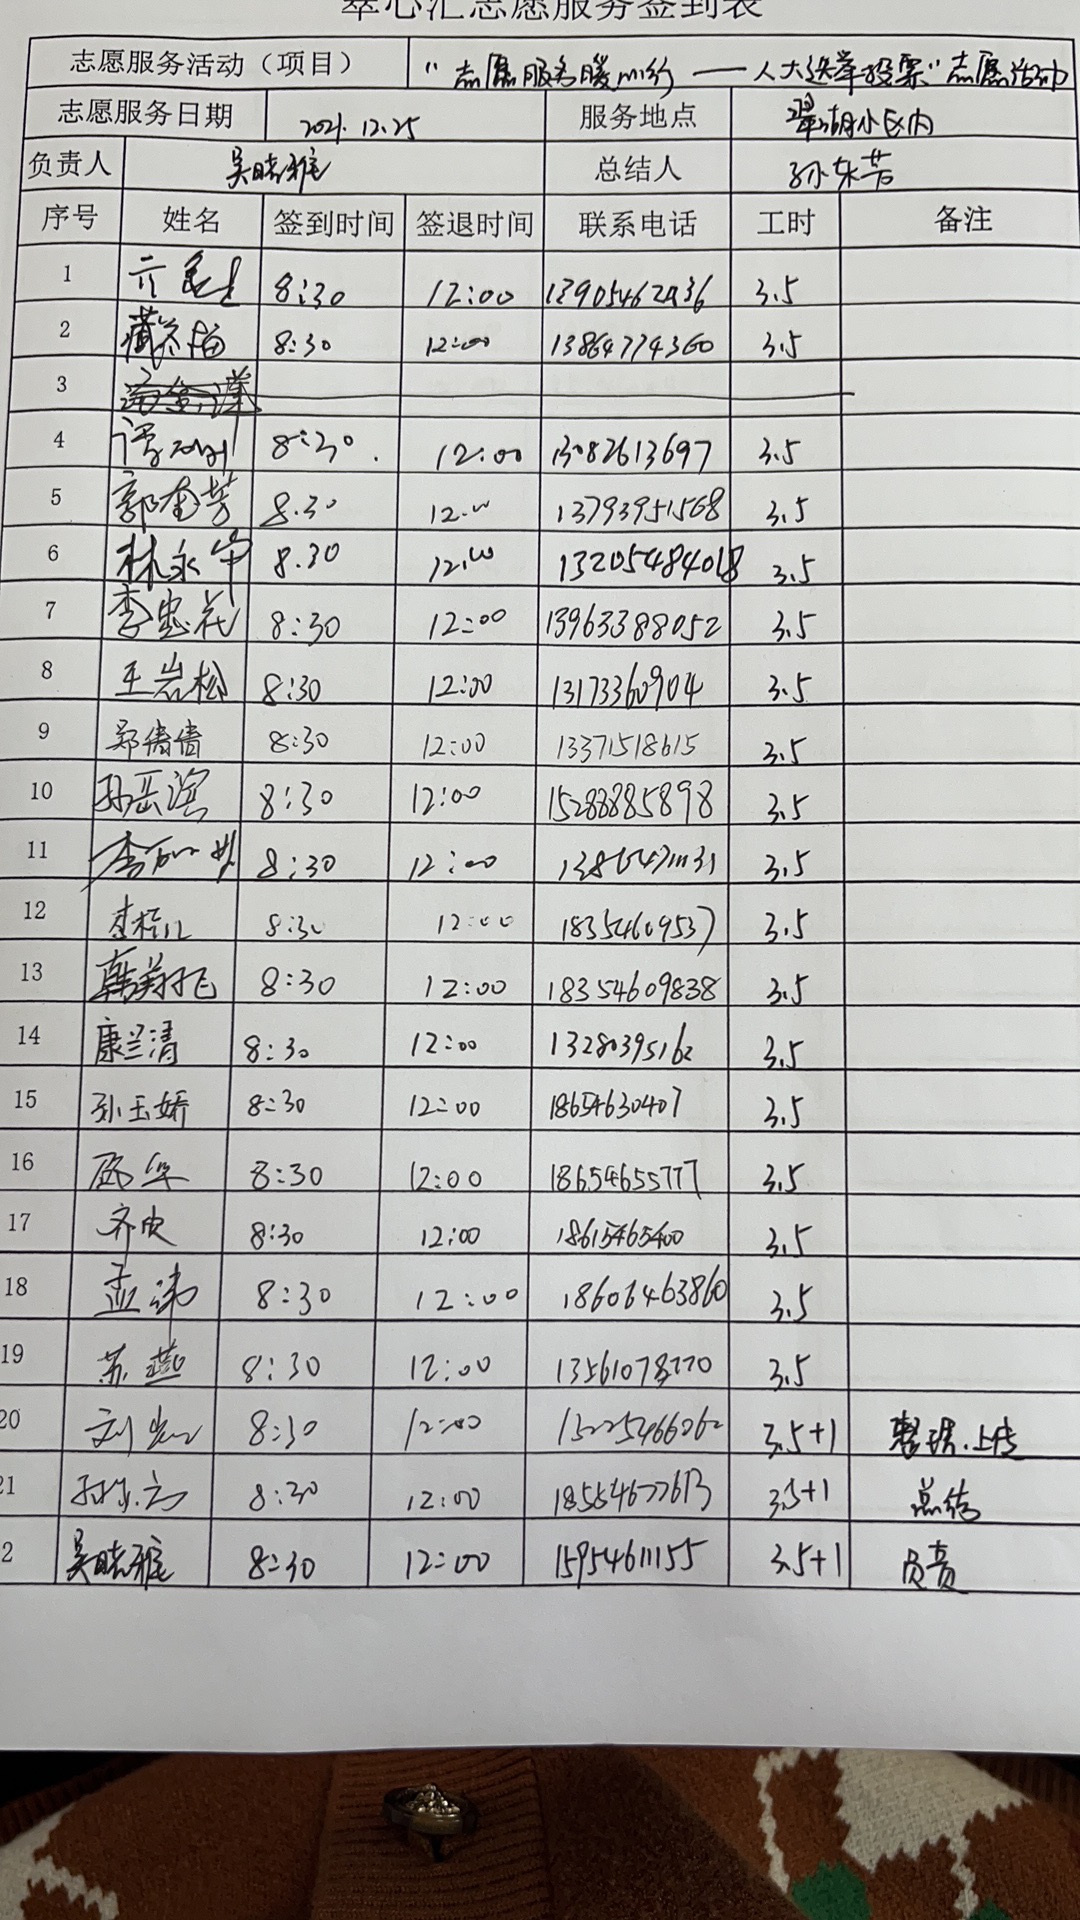 翠心汇志愿服务签到表
志愿服务活动（项目） “志愿服务暖心行——人大选举投票”志愿活动
志愿服务日期 2021.12.25 服务地点 翠湖小区内
负责人 吴晓雅 总结人 孙东芳
序号 姓名 签到时间 签退时间 联系电话 工时 备注
1 8:30 12:00 3.5
2 8:30 12:00 13864774360 3.5
3
4 8:30. 12:00 13082613697 3.5
5 郭奎芳 8.30 12.00 13793951568 3.5
6 林永华 8.30 12.00 13205484018 3.5
7 李忠花 8:30 12:00 13963388052 3.5
8 王岩松 8:30 12:00 13173360904 3.5
9 郑倩倩 8:30 12:00 13371518615 3.5
10 孙岳滨 8:30 12:00 15288885898 3.5
11 8:30 12:00 3.5
12 8:30 12:00 18354609537 3.5
13 韩翔飞 8:30 12:00 18354609838 3.5
14 康兰清 8:30 12:00 13280395162 3.5
15 孙玉娇 8:30 12:00 18654630407 3.5
16 8:30 12:00 18654655777 3.5
17 齐欣 8:30 12:00 18615465400 3.5
18 孟沛 8:30 12:00 18606463860 3.5
19 苏燕 8:30 12:00 13561078770 3.5
20 8:30 12:00 15225466062 3.5+1 整理.上传
21 孙东芳 8:30 12:00 18554677613 3.5+1 总结
2 吴晓雅 8:30 12:00 15954611155 3.5+1 负责